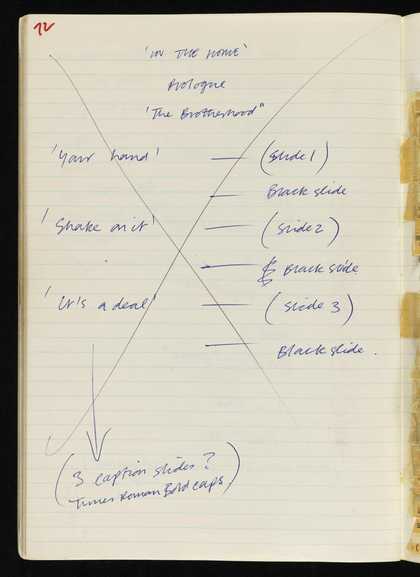 72
'IN THE HOME'
Prologue
'The Brotherhood"
'Your hand' — (Slide 1)
— Black slide
'Shake on it' — (Slide 2)
— Black slide
'It's a deal' — (Slide 3)
— Black slide.
(3 caption slides?
Times Roman Bold caps)